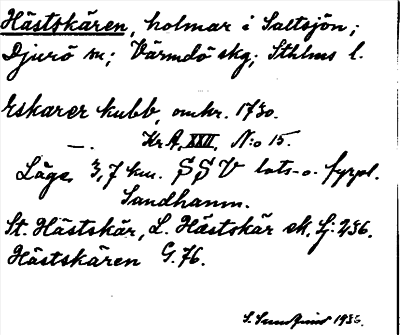 Hästskären, holmar i Saltsjön;
Djurö sn; Värmdö skg; Sthlms l.
Eskarer kubb, omkr. 1730.
—. Kr A, XXII, N:o 15.
Läge 3,7 km. SSV lots- o. fyrpl.
Sandhamn.
St. Hästskär, L. Hästskär sk. Sj: 236.
Hästskären G. 76.
S. 1936.